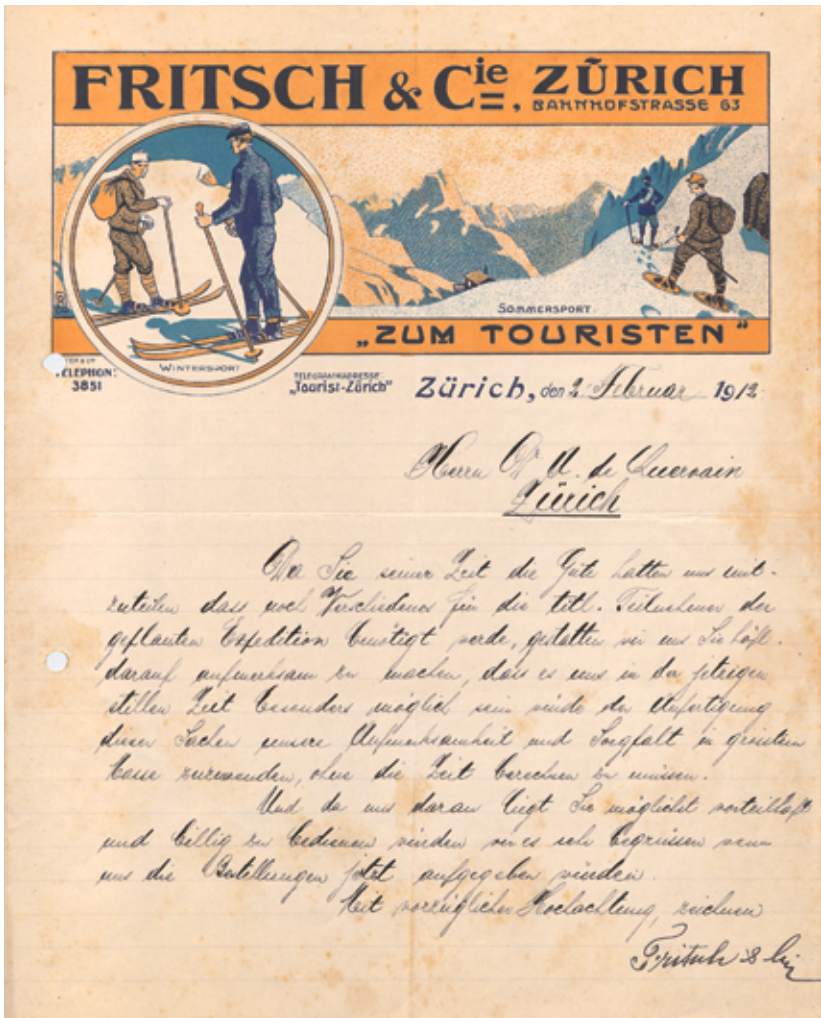 FRITSCH & Cie, ZÜRICH
BAHNHOFSTRASSE 63
SOMMERSPORT
„ZUM TOURISTEN"
WINTERSPORT
TELEPHON:
3851
TELEGRAMMADRESSE:
„Tourist-Zürich"
Zürich, den 2. Februar 1912
Herrn Dr. A. de Quervain
Zürich
Da Sie seiner Zeit die Güte hatten uns mit-
zuteilen dass noch Verschiedenes für die titl. Teilnehmer der
geplanten Expedition benötigt werde, gestatten wir uns Sie höfl.
darauf aufmerksam zu machen, dass es uns in der jetzigen
stillen Zeit besonders möglich sein würde der Anfertigung
dieser Sachen unsere Aufmerksamkeit und Sorgfalt in grösstem
Masse zuzuwenden, ohne die Zeit berechnen zu müssen.
Und da uns daran liegt Sie möglichst vorteilhaft
und billig zu bedienen würden wir es sehr begrüssen wenn
uns die Bestellungen jetzt aufgegeben würden.
Mit vorzüglicher Hochachtung, zeichnen
Fritsch & Cie